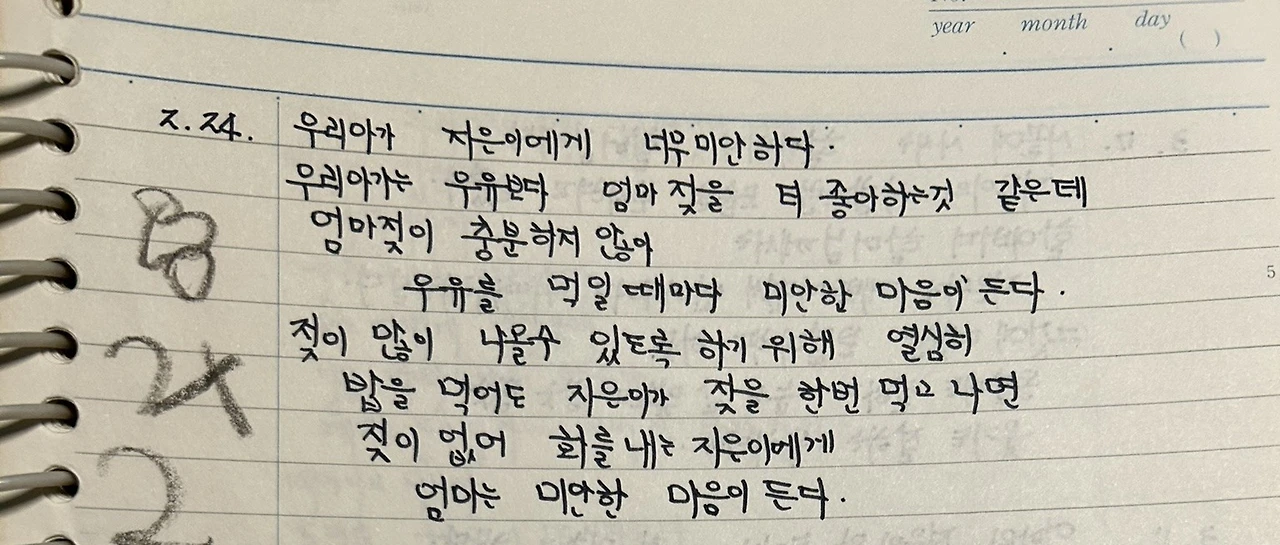 year month day
( )
2.24. 우리아가 지은이에게 너무미안하다.
우리아가는 우유보다 엄마 젖을 더 좋아하는것 같은데
엄마젖이 충분하지 않아
우유를 먹일때마다 미안한 마음이 든다.
5
젖이 많이 나올수 있도록 하기 위해 열심히
밥을 먹어도 지은이가 젖을 한번 먹고 나면
젖이 없어 화를 내는 지은이에게
엄마는 미안한 마음이 든다.